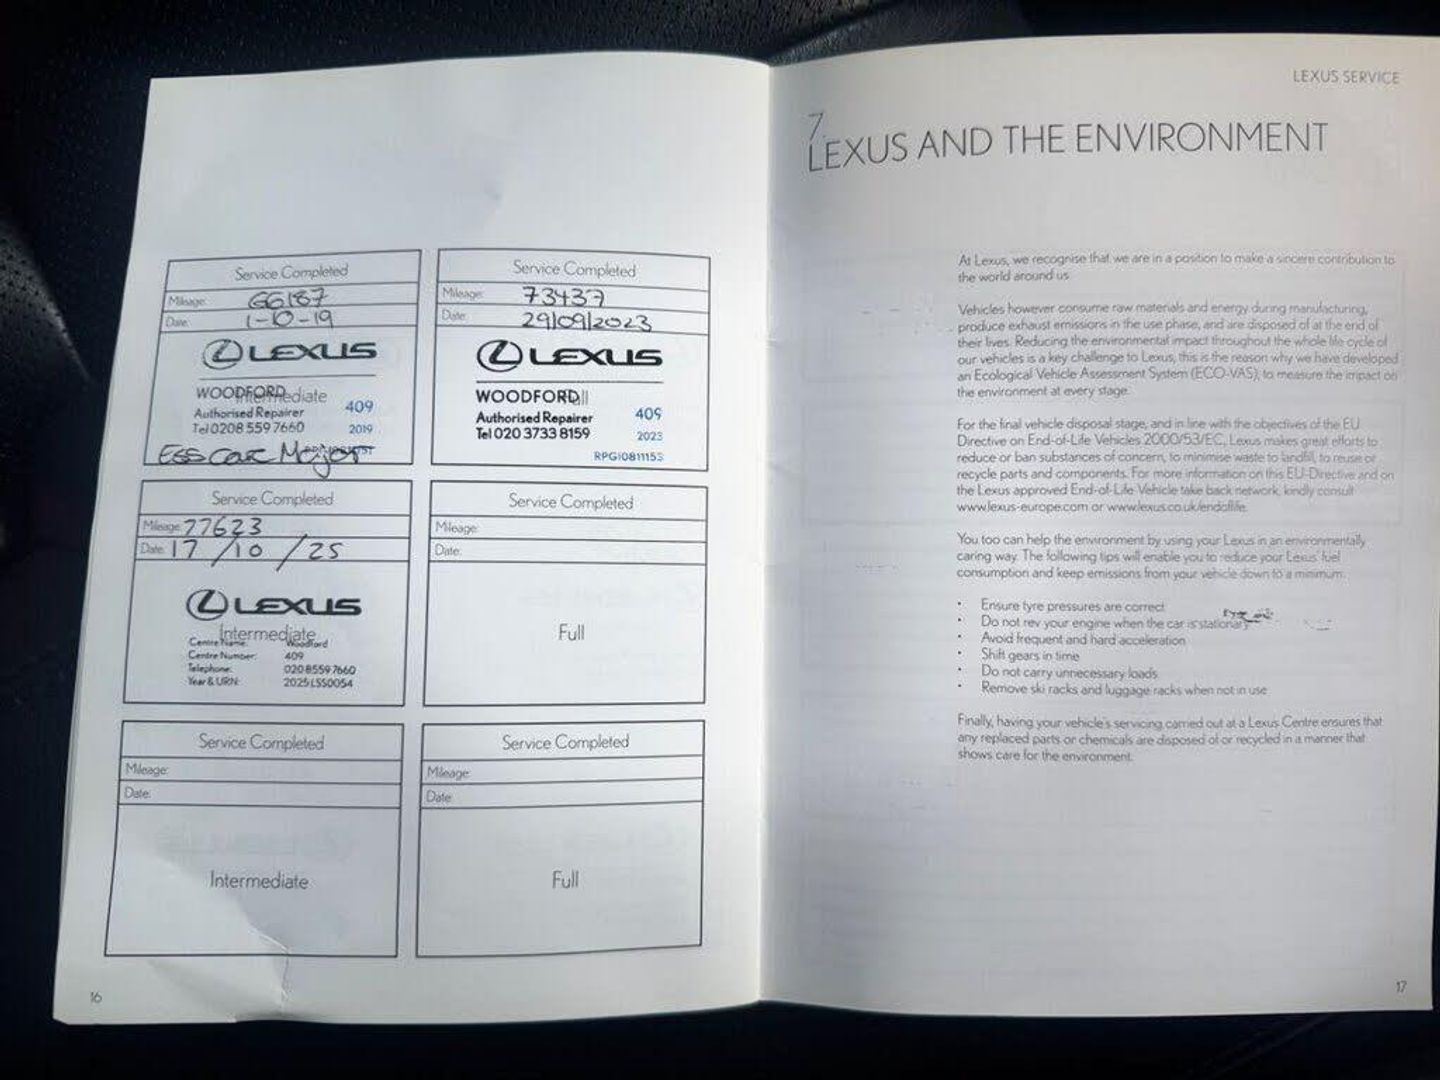 Service Completed
Mileage: 66187
Date: 1-10-19
LEXUS
WOODFORD
Intermediate
Authorised Repairer 409
Tel 0208 559 7660 2019
Major
Service Completed
Mileage: 73437
Date: 29/09/2023
LEXUS
WOODFORD
Full
Authorised Repairer 409
Tel 020 3733 8159 2023
RPGI081115S
Service Completed
Mileage: 77623
Date: 17/10/25
LEXUS
Intermediate
Centre Name: Woodford
Centre Number: 409
Telephone: 020 8559 7660
Year & URN: 2025LSS0054
Service Completed
Mileage:
Date:
Full
Service Completed
Mileage:
Date:
Intermediate
Service Completed
Mileage:
Date:
Full
16
LEXUS SERVICE
7.
LEXUS AND THE ENVIRONMENT
At Lexus, we recognise that we are in a position to make a sincere contribution to
the world around us.
Vehicles however consume raw materials and energy during manufacturing,
produce exhaust emissions in the use phase, and are disposed of at the end of
their lives. Reducing the environmental impact throughout the whole life cycle of
our vehicles is a key challenge to Lexus, this is the reason why we have developed
an Ecological Vehicle Assessment System (ECO-VAS), to measure the impact on
the environment at every stage.
For the final vehicle disposal stage, and in line with the objectives of the EU
Directive on End-of-Life Vehicles 2000/53/EC, Lexus makes great efforts to
reduce or ban substances of concern, to minimise waste to landfill, to reuse or
recycle parts and components. For more information on this EU-Directive and on
the Lexus approved End-of-Life Vehicle take back network, kindly consult
www.lexus-europe.com or www.lexus.co.uk/endoflife.
You too can help the environment by using your Lexus in an environmentally
caring way. The following tips will enable you to reduce your Lexus' fuel
consumption and keep emissions from your vehicle down to a minimum.
• Ensure tyre pressures are correct
• Do not rev your engine when the car is stationary
• Avoid frequent and hard acceleration
• Shift gears in time
• Do not carry unnecessary loads
• Remove ski racks and luggage racks when not in use
Finally, having your vehicle's servicing carried out at a Lexus Centre ensures that
any replaced parts or chemicals are disposed of or recycled in a manner that
shows care for the environment.
17